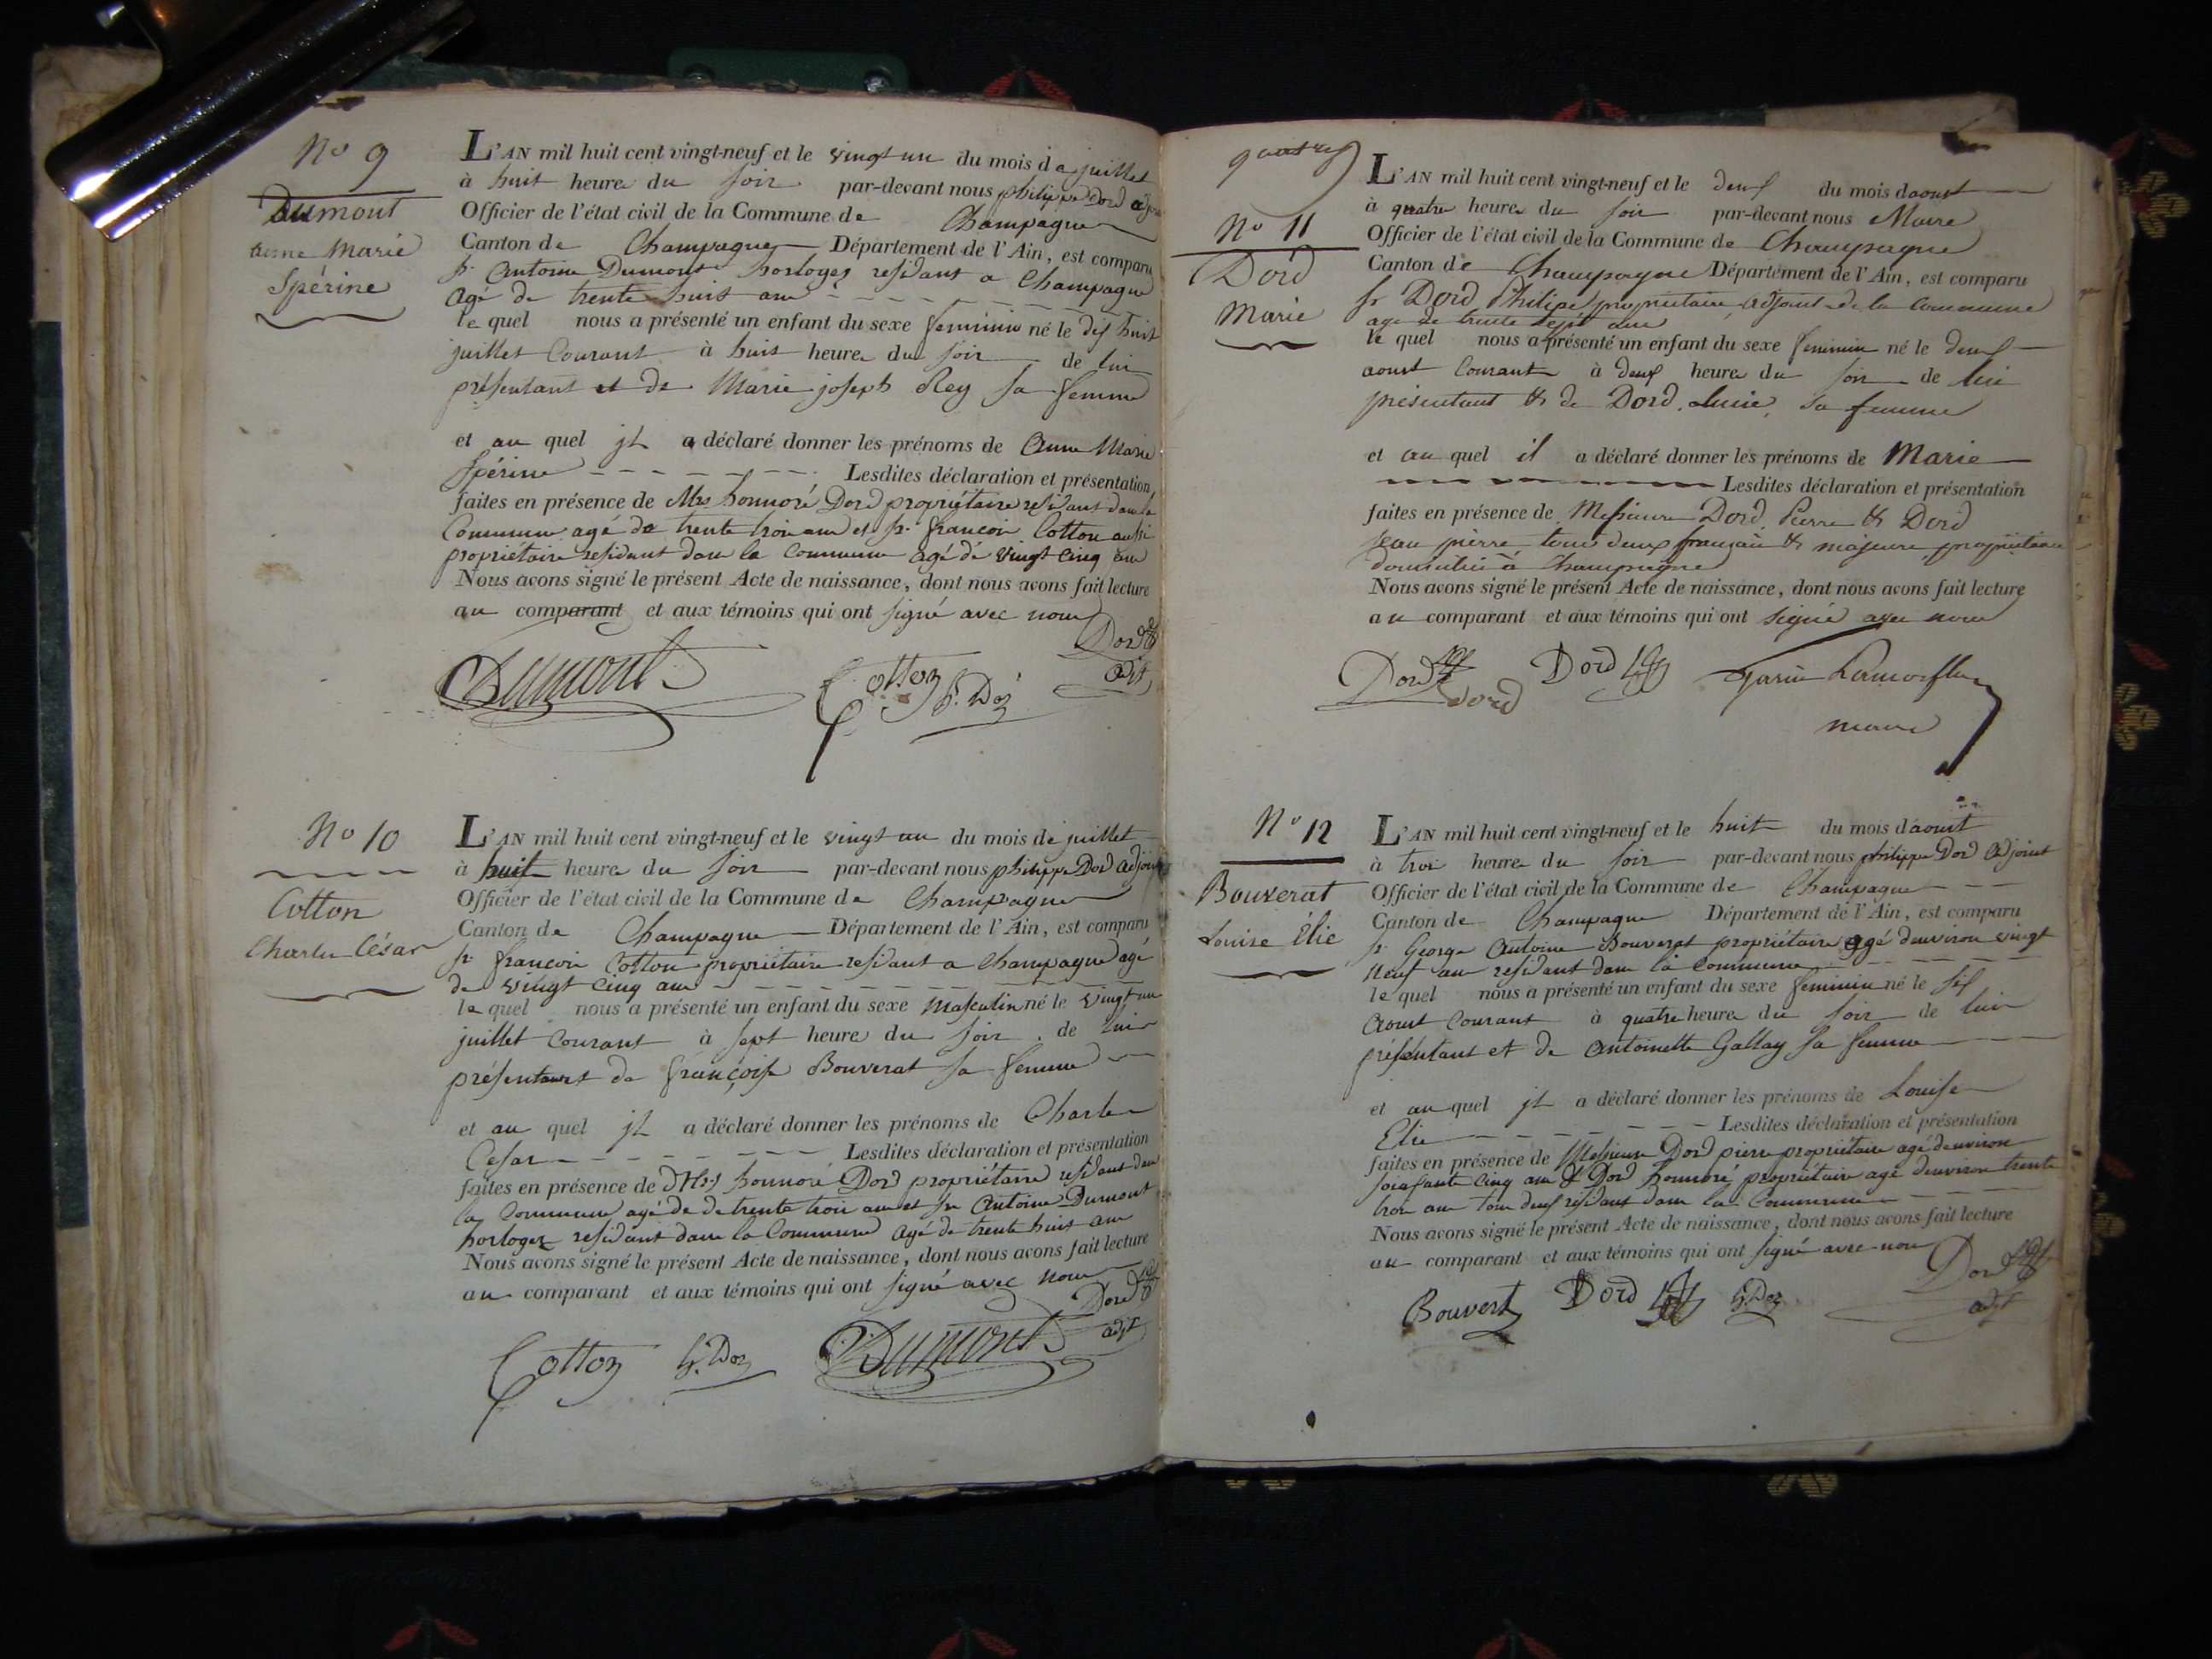 No 9
Dumont
anne Marie
Spérine
L'AN mil huit cent vingt-neuf et le vingt un du mois de juillet
à huit heure du soir par-devant nous philippe Dord adjoint
Officier de l'état civil de la Commune de Champagne
Canton de Champagne Département de l'Ain, est comparu
sr. Antoine Dumont horloger residant a Champagne
agé de trente huit ans
le quel nous a présenté un enfant du sexe feminin né le dix huit
juillet Courant à huit heure du soir de lui
présentant et de Marie joseph Rey sa femme
et au quel il a déclaré donner les prénoms de Anne Marie
Spérine Lesdites déclaration et présentation
faites en présence de Mrs honnoré Dord propriétaire residant dans la
Commune agé de trente trois ans et sr. françois Cotton aussi
propriétaire residant dans la Commune agé de vingt cinq ans
Nous avons signé le présent Acte de naissance, dont nous avons fait lecture
au comparant et aux témoins qui ont signé avec nous
Dord
adjt
Dumont Cotton h. Dor
No 10
Cotton
Charles César
L'AN mil huit cent vingt-neuf et le vingt un du mois de juillet
à huit heure du soir par-devant nous philippe Dord adjoint
Officier de l'état civil de la Commune de Champagne
Canton de Champagne Département de l'Ain, est comparu
sr. françois Cotton propriétaire residant a Champagne agé
de vingt cinq ans
le quel nous a présenté un enfant du sexe masculin né le vingt un
juillet courant à sept heure du soir de lui
présentant de françoise Bouverat sa femme
et au quel il a déclaré donner les prénoms de Charles
Cesar Lesdites déclaration et présentation
faites en présence de Mrs honnoré Dord propriétaire residant dans
la Commune agé de de trente trois ans et sr Antoine Dumont
horloger residant dans la Commune agé de trente huit ans
Nous avons signé le présent Acte de naissance, dont nous avons fait lecture
au comparant et aux témoins qui ont signé avec nous
Dord
adjt
Cotton h. Dor Dumont
quatre
No 11
Dord
Marie
L'AN mil huit cent vingt-neuf et le deux du mois d'aoust
à quatre heure du soir par-devant nous Maire
Officier de l'état civil de la Commune de Champagne
Canton de Champagne Département de l'Ain, est comparu
sr Dord Philipe propriétaire, adjoint de la Commune
age de trente sept ans
le quel nous a présenté un enfant du sexe feminin né le deux
aoust Courant à deux heure du soir de lui
présentant & de Dord Lucie, sa femme
et au quel il a déclaré donner les prénoms de Marie
Lesdites déclaration et présentation
faites en présence de Messieurs Dord Pierre & Dord
Jean pierre tous deux français & majeurs propriétaires
domiciliés à Champagne
Nous avons signé le présent Acte de naissance, dont nous avons fait lecture
au comparant et aux témoins qui ont signé avec nous
Dord Dord Dord
maire
No 12
Bouverat
Louise Élie
L'AN mil huit cent vingt-neuf et le huit du mois d'aoust
à trois heure du soir par-devant nous philippe Dord adjoint
Officier de l'état civil de la Commune de Champagne
Canton de Champagne Département de l'Ain, est comparu
sr. George Antoine Bouverat propriétaire agé d'environ vingt
neuf ans residant dans la Commune
le quel nous a présenté un enfant du sexe feminin né le six
Aoust Courant à quatre heure du soir de lui
présentant et de Antoinette Gallay sa femme
et au quel il a déclaré donner les prénoms de Louise
Elie Lesdites déclaration et présentation
faites en présence de Messieurs Dord pierre propriétaire agé d'environ
soixante cinq ans & Dord honnoré propriétaire agé d'environ trente
trois ans tous deux residant dans la Commune
Nous avons signé le présent Acte de naissance, dont nous avons fait lecture
au comparant et aux témoins qui ont signé avec nous
Dord
adjt
Bouvert Dord h. Dor